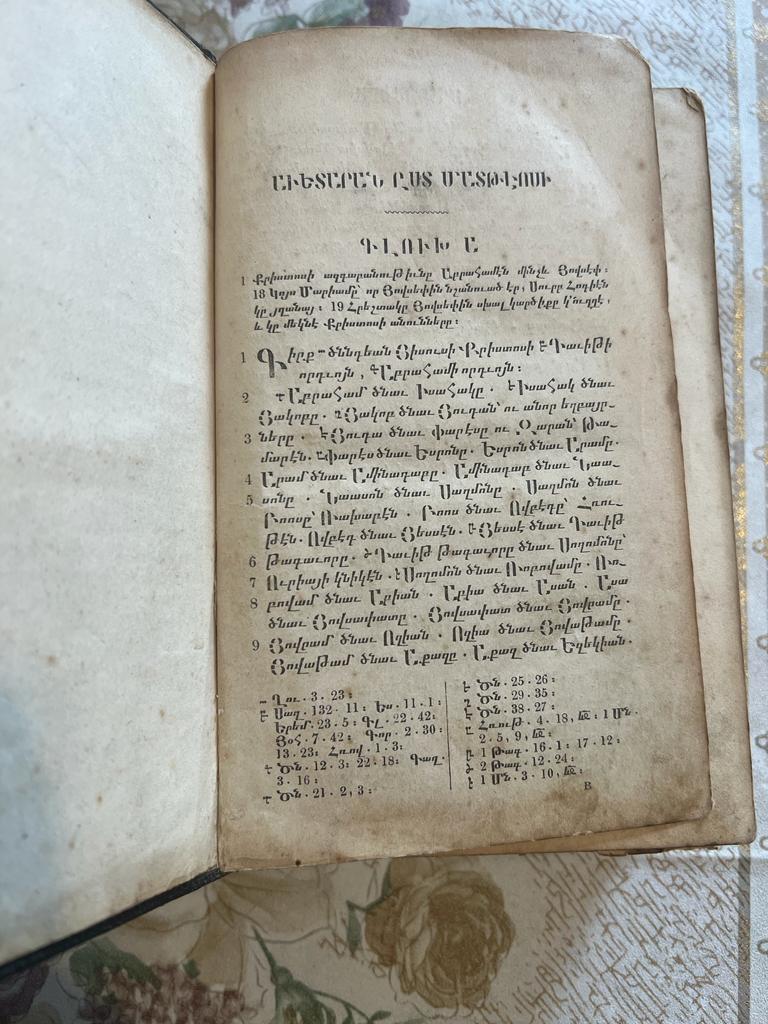 ԱՒԵՏԱՐԱՆ ԸՍՏ ՄԱՏԹԷՈՍԻ
ԳԼՈՒԽ Ա
1 Քրիստոսի ազգաբանութիւնը Աբրահամէն մինչեւ Յովսէփ։
18 Կոյս Մարիամը՝ որ Յովսեփին նշանուած էր, Սուրբ Հոգիէն
կը յղանայ։ 19 Հրեշտակը Յովսեփին սխալ կարծիքը կ՚ուղղէ,
և կը մեկնէ Քրիստոսի անունները։
1 Գիրք ծննդեան Յիսուսի Քրիստոսի Դաւիթի
որդւոյն, Աբրահամի որդւոյն։
2 Աբրահամ ծնաւ Իսահակը. Իսահակ ծնաւ
Յակոբը. Յակոբ ծնաւ Յուդան՝ ու անոր եղբայր-
3 ները. Յուդա ծնաւ Փարէսը ու Զարան՝ Թա-
մարէն. Փարէս ծնաւ Եսրոնը. Եսրոն ծնաւ Արամը.
4 Արամ ծնաւ Ամինադաբը. Ամինադաբ ծնաւ Նաա-
5 սոնը. Նաասոն ծնաւ Սաղմօնը. Սաղմօն ծնաւ
Բոոսը՝ Ռախաբէն. Բոոս ծնաւ Ովբէդը՝ Հռու-
թէն. Ովբէդ ծնաւ Յեսսէն. Յեսսէ ծնաւ Դաւիթ
6 թագաւորը. Դաւիթ թագաւորը ծնաւ Սողոմօնը՝
7 Ուրիայի կնիկէն. Սողոմօն ծնաւ Ռոբովամը. Ռո-
8 բովամ ծնաւ Աբիան. Աբիա ծնաւ Ասան. Ասա
ծնաւ Յովսափատը. Յովսափատ ծնաւ Յովրամը.
9 Յովրամ ծնաւ Ոզիան. Ոզիա ծնաւ Յովաթամը.
Յովաթամ ծնաւ Աքազը. Աքազ ծնաւ Եզեկիան.
Ղու. 3. 23։
Սաղ. 132. 11։ Ես. 11. 1։
Երեմ. 23. 5։ Գլ. 22. 42։
Յօհ. 7. 42։ Գոր. 2. 30։
13. 23։ Հռով. 1. 3։
Ծն. 12. 3։ 22. 18։ Գաղ.
3. 16։
Ծն. 21. 2, 3։
Ծն. 25. 26։
Ծն. 29. 35։
Ծն. 38. 27։
Հռութ. 4. 18, և։ 1 Մն.
2. 5, 9, և։
1 Թագ. 16. 1։ 17. 12։
2 Թագ. 12. 24։
1 Մն. 3. 10, և։
B